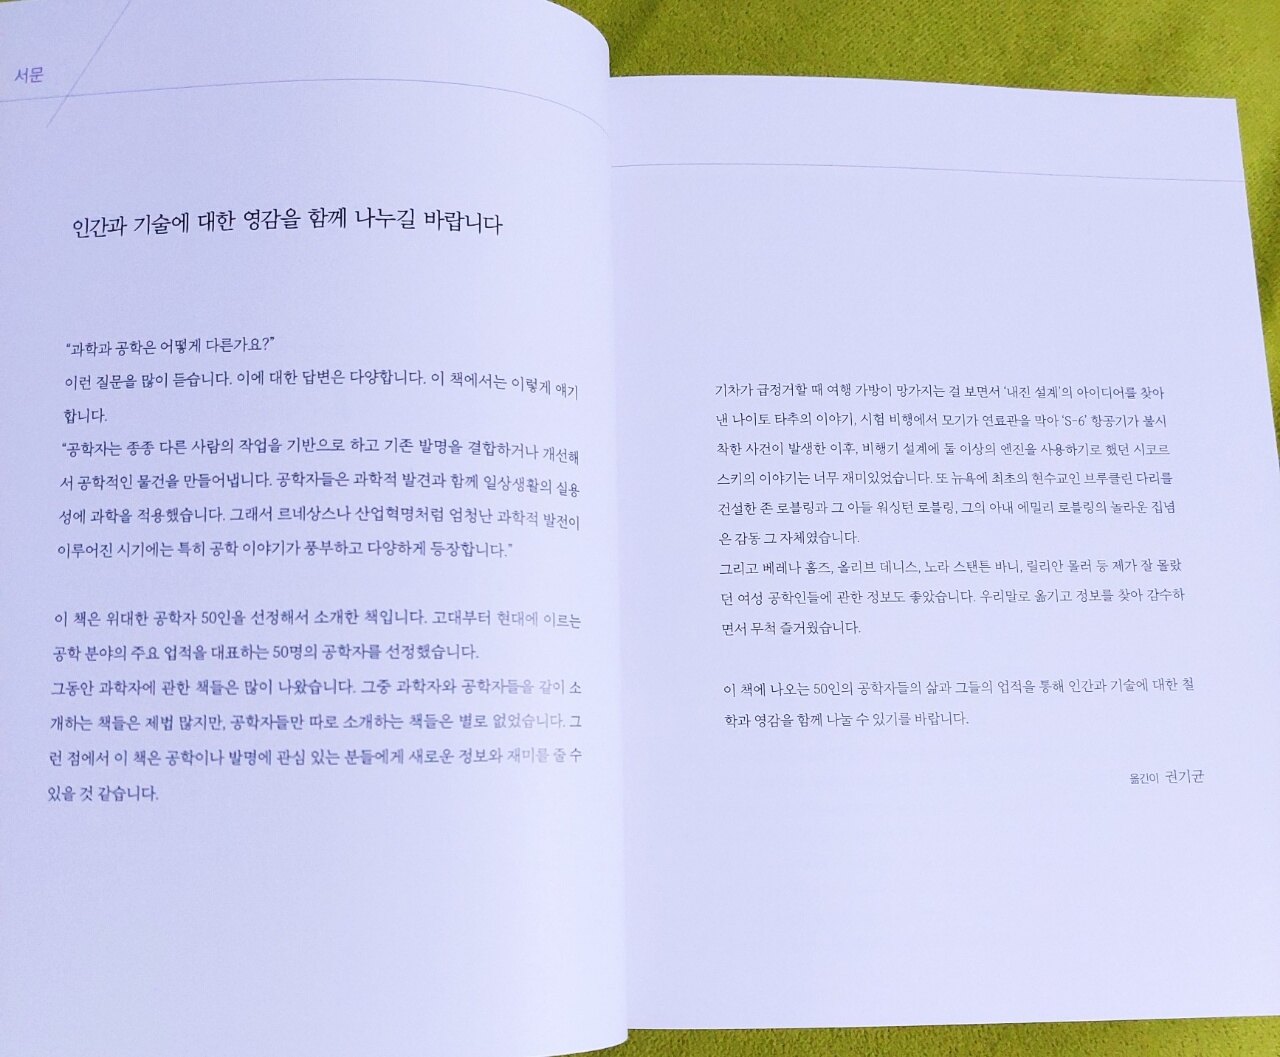 서문
인간과 기술에 대한 영감을 함께 나누길 바랍니다
“과학과 공학은 어떻게 다른가요?”
이런 질문을 많이 듣습니다. 이에 대한 답변은 다양합니다. 이 책에서는 이렇게 얘기
합니다.
“공학자는 종종 다른 사람의 작업을 기반으로 하고 기존 발명을 결합하거나 개선해
서 공학적인 물건을 만들어냅니다. 공학자들은 과학적 발견과 함께 일상생활의 실용
성에 과학을 적용했습니다. 그래서 르네상스나 산업혁명처럼 엄청난 과학적 발전이
이루어진 시기에는 특히 공학 이야기가 풍부하고 다양하게 등장합니다.”
이 책은 위대한 공학자 50인을 선정해서 소개한 책입니다. 고대부터 현대에 이르는
공학 분야의 주요 업적을 대표하는 50명의 공학자를 선정했습니다.
그동안 과학자에 관한 책들은 많이 나왔습니다. 그중 과학자와 공학자들을 같이 소
개하는 책들은 제법 많지만, 공학자들만 따로 소개하는 책들은 별로 없었습니다. 그
런 점에서 이 책은 공학이나 발명에 관심 있는 분들에게 새로운 정보와 재미를 줄 수
있을 것 같습니다.
기차가 급정거할 때 여행 가방이 망가지는 걸 보면서 ‘내진 설계’의 아이디어를 찾아
낸 나이토 타추의 이야기, 시험 비행에서 모기가 연료관을 막아 ‘S-6’ 항공기가 불시
착한 사건이 발생한 이후, 비행기 설계에 둘 이상의 엔진을 사용하기로 했던 시코르
스키의 이야기는 너무 재미있었습니다. 또 뉴욕에 최초의 현수교인 브루클린 다리를
건설한 존 로블링과 그 아들 워싱턴 로블링, 그의 아내 에밀리 로블링의 놀라운 집념
은 감동 그 자체였습니다.
그리고 베레나 홈즈, 올리브 데니스, 노라 스탠튼 바니, 릴리안 몰러 등 제가 잘 몰랐
던 여성 공학인들에 관한 정보도 좋았습니다. 우리말로 옮기고 정보를 찾아 감수하
면서 무척 즐거웠습니다.
이 책에 나오는 50인의 공학자들의 삶과 그들의 업적을 통해 인간과 기술에 대한 철
학과 영감을 함께 나눌 수 있기를 바랍니다.
옮긴이 권기균